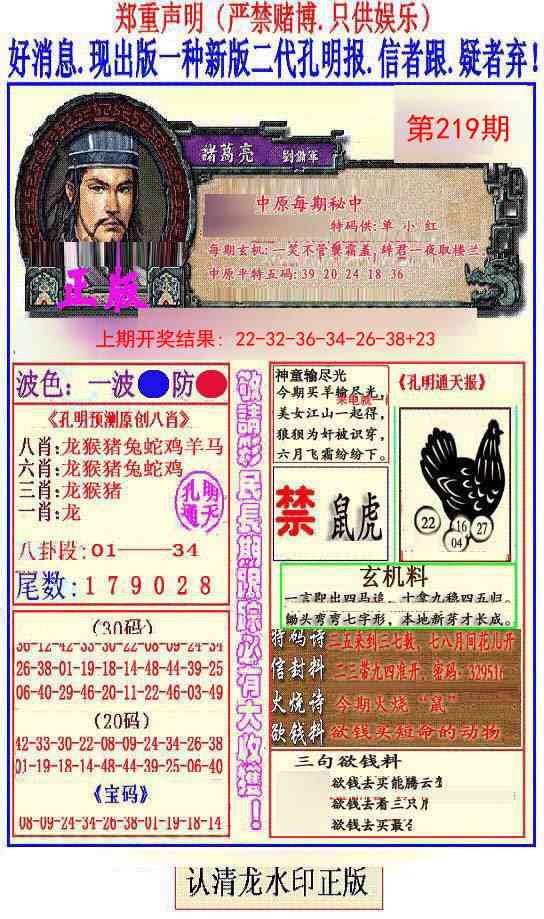 郑重声明（严禁赌博.只供娱乐）
好消息.现出版一种新版二代孔明报.信者跟.疑者弃!
第219期
諸葛亮 劉備軍
中原每期秘中
特码供: 单 小 红
每期玄机: 一笑不管 霜盖, 辞君一夜取楼兰.
中原平特五码: 39 20 24 18 36
正版
上期开奖结果: 22-32-36-34-26-38+23
波色: 一波 防
《孔明预测原创八肖》
八肖:龙猴猪兔蛇鸡羊马
六肖:龙猴猪兔蛇鸡
三肖:龙猴猪
一肖:龙
孔明
通天
八卦段: 01——34
尾数: 1 7 9 0 2 8
敬請彩民長期跟踪必有大收獲!
神童输尽光
今期买羊输尽光,
美女江山一起得,
狼狈为奸被识穿,
六月飞霜纷纷下。
《孔明通天报》
22
16
27
04
禁 鼠虎
玄机料
一言即出四马追, 十拿九稳四五归。
锄头弯弯七字形, 本地新芽才长成。
(30码)
30-12-42-33-30-22-08-09-24-34
26-38-01-19-18-14-48-44-39-25
06-40-29-46-20-11-22-46-03-49
(20码)
42-33-30-22-08-09-24-34-26-38
01-19-18-14-48-44-39-25-06-40
《宝码》
08-09-24-34-26-38-01-19-18-14
特码诗 三五来到三七数, 七八月间花儿开
信封料 二三带九四准开, 密码: 329516
火烧诗 今期火烧“鼠”
欲钱料 欲钱买短命的动物
三句欲钱料
欲钱去买能腾云
欲钱去看三只
欲钱去买最
认清龙水印正版